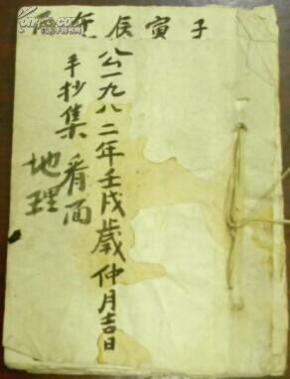 子寅辰
公一九八二年壬戌歲仲月吉日
手抄集 看面
地理